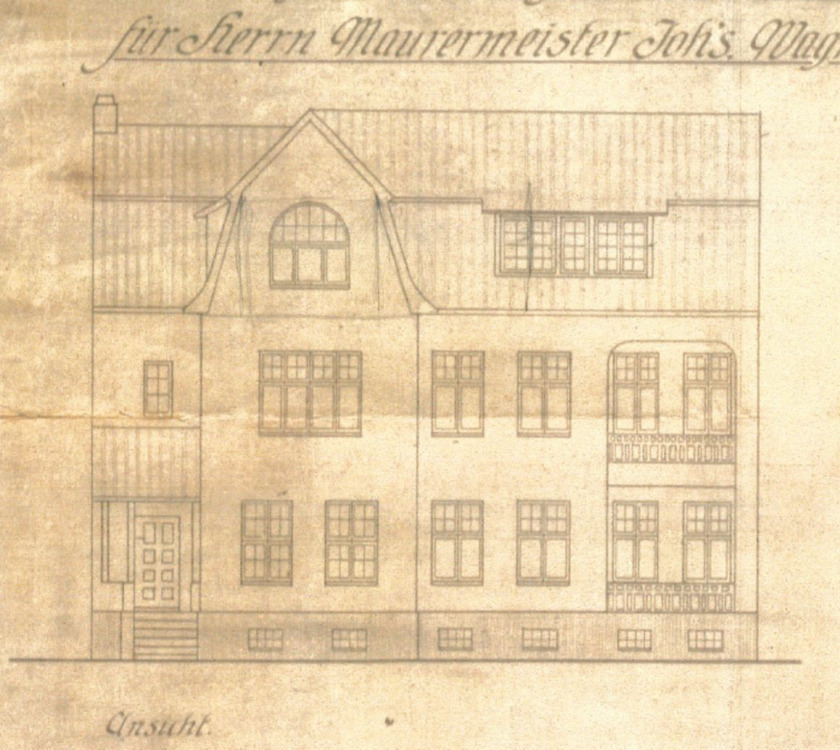 für Herrn Maurermeister Joh's. Wag
Ansicht.